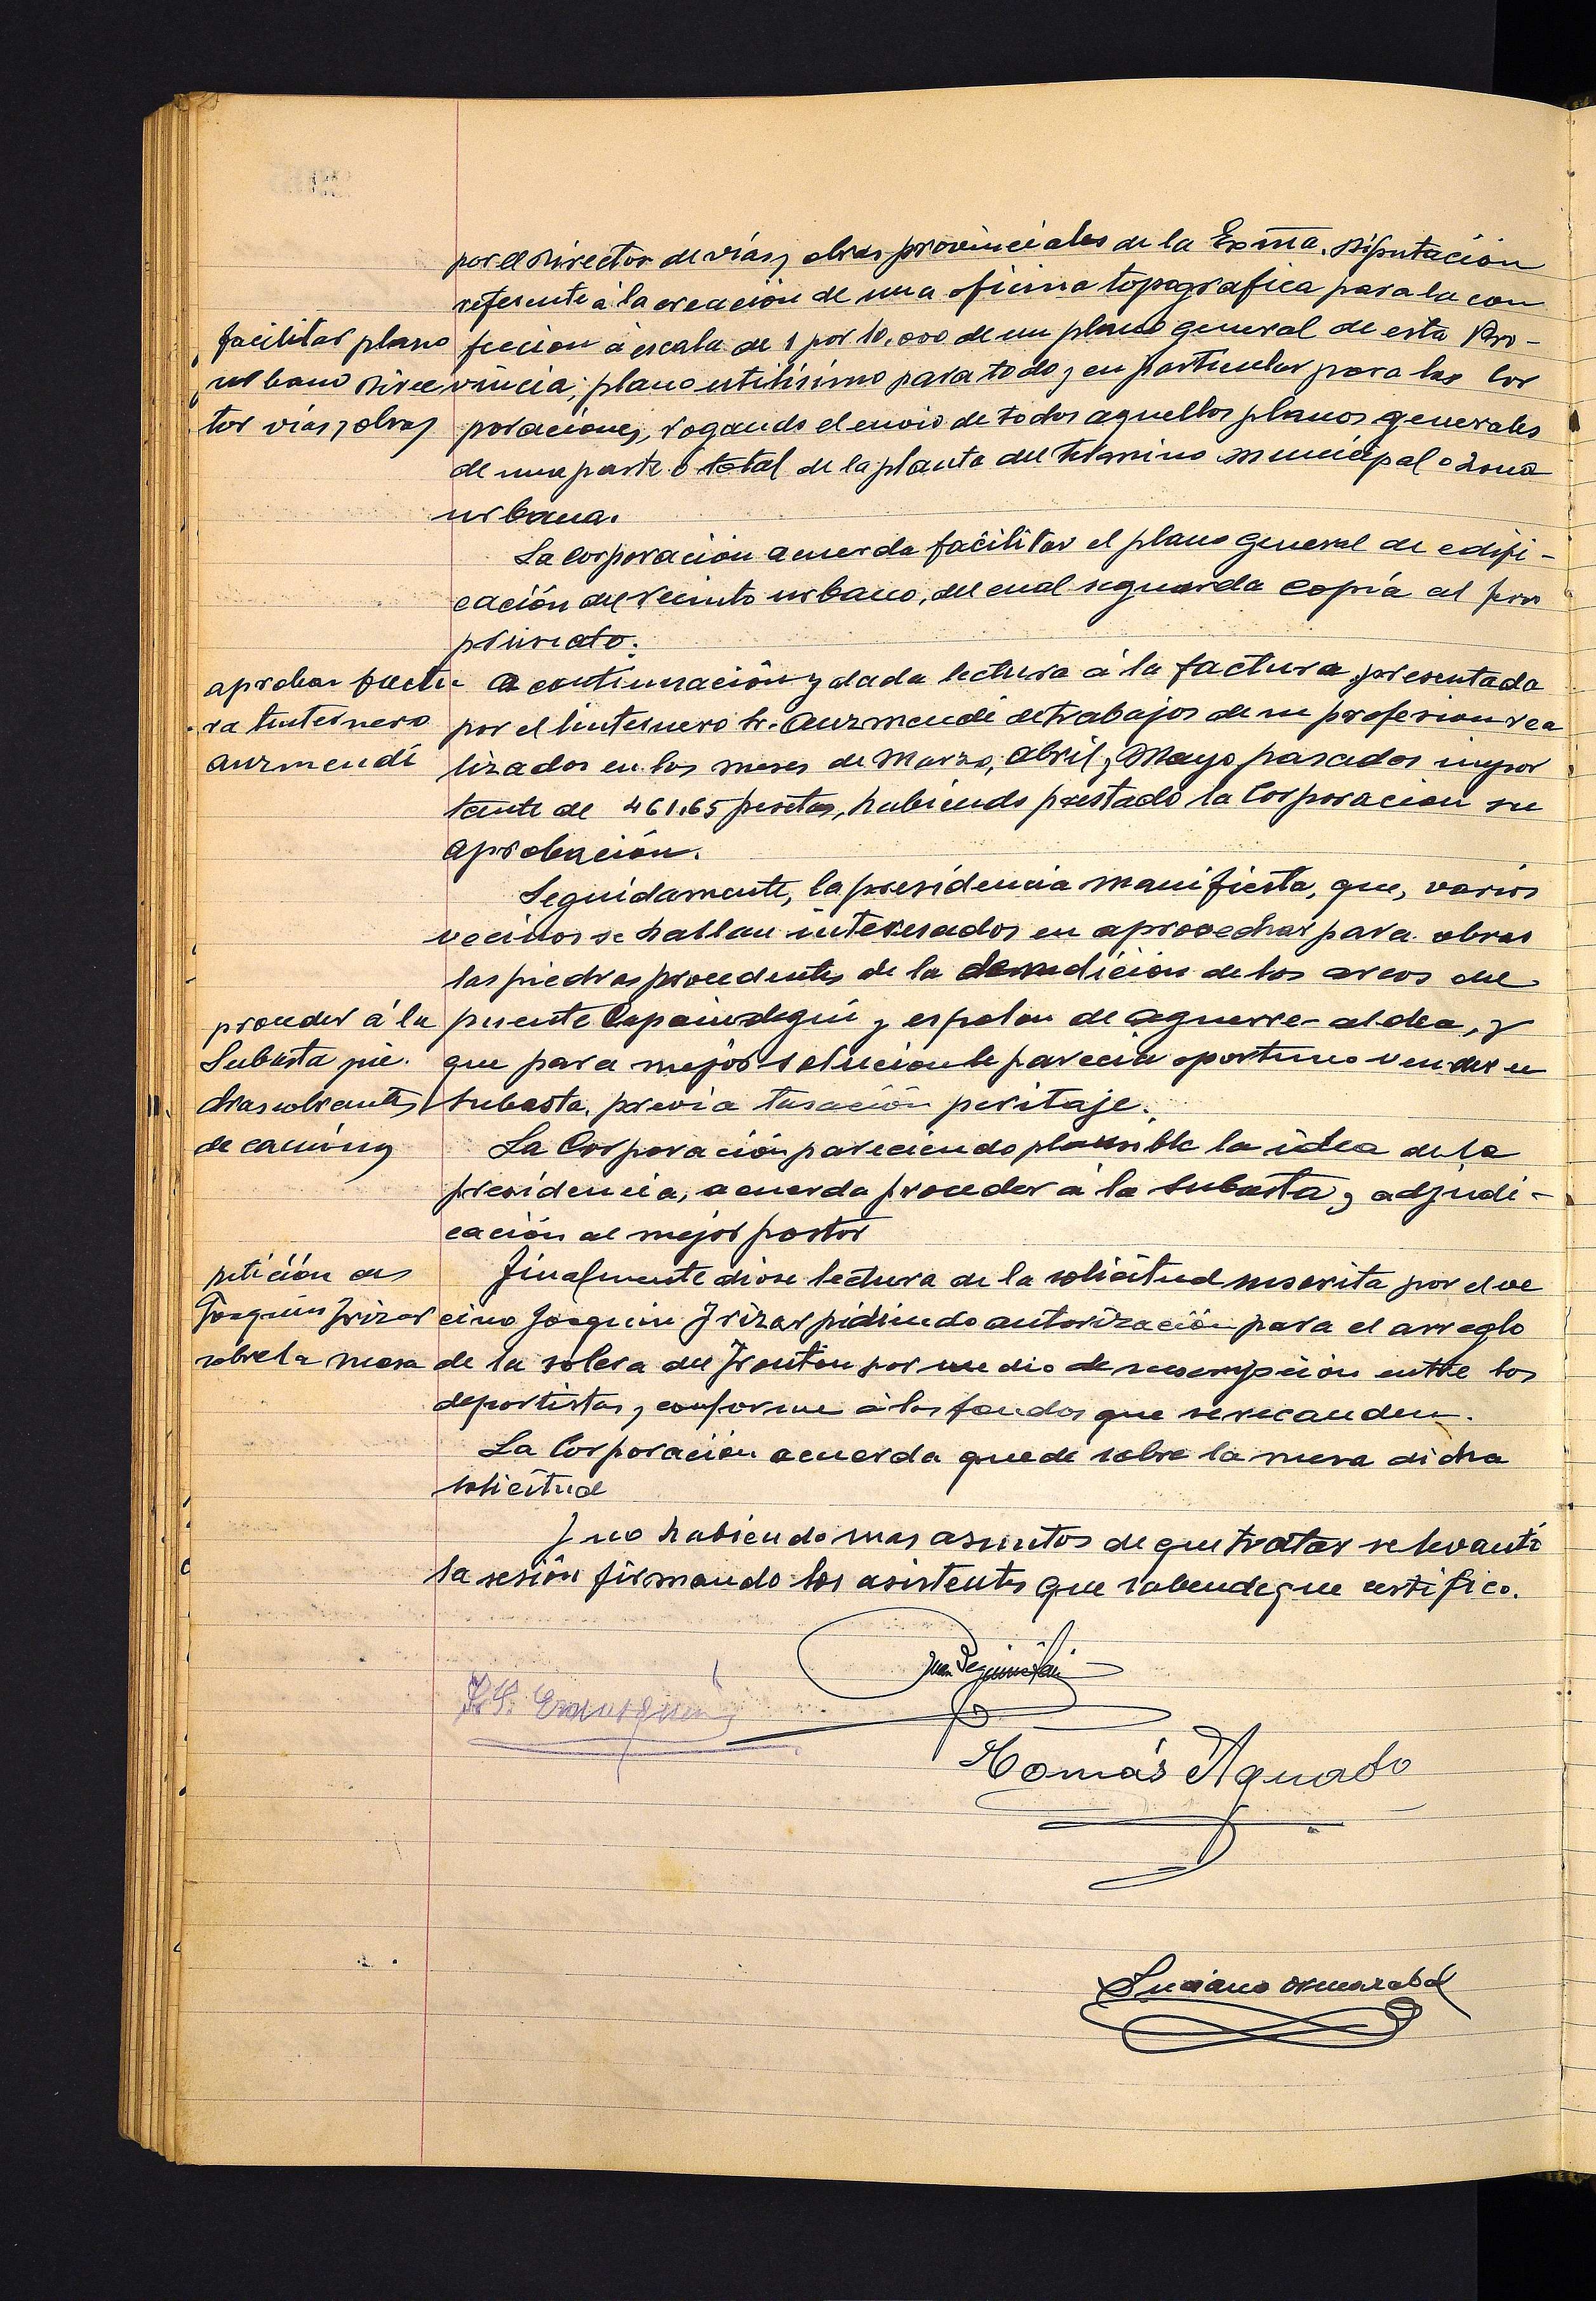 por el Director de vías y obras provinciales de la Exma. Diputación
referente á la creación de una oficina topografica para la con
facilitar plano
fección á escala de 1 por 10.000 de un plano general de esta Pro-
urbano Direc
vincia; plano utilísimo para todo y en particular para las Cor
tor vías y obras
poraciones, rogando el envio de todos aquellos planos generales
de una parte ó total de la planta del termino municipal o zona
urbana.
La Corporación acuerda facilitar el plano general de edifi-
cación del recinto urbano, del cual se guarda copia al
aprobar factu-
A continuación y dada lectura á la factura presentada
ra linternero
por el linternero Sr. Aurmendi de trabajos de su profesion rea
Aurmendi
lizados en los meses de Marzo, Abril y Mayo pasados impor
tante de 461.65 pesetas, habiendo prestado la Corporacion su
aprobación.
Seguidamente, la presidencia manifiesta, que, varios
vecinos se hallan interesados en aprovechar para obras
las piedras procedentes de la de los arcos del
proceder á la
puente y espolon de aguerre-aldea, y
Subasta pie-
que para mejor solucion le parecia oportuno vender en
dras sobrantes
subasta, previa tasación peritaje.
de caminos
La Corporación pareciendo plausible la idea de la
presidencia, acuerda proceder á la subasta y adjudi-
cación al mejor postor
petición de
Finalmente diose lectura de la solicitud suscrita por el ve
Joaquín Irizar
cino Joaquin Irizar pidiendo autorización para el arreglo
sobre la mesa
de la solera del Fronton por medio de suscripción entre los
deportistas y conforme á los fondos que se recauden.
La Corporación acuerda quede sobre la mesa dicha
solicitud
Y no habiendo mas asuntos de que tratar se levantó
la sesión firmando los asistentes que saben de que certifico.
Tomás Aguado
Luciano